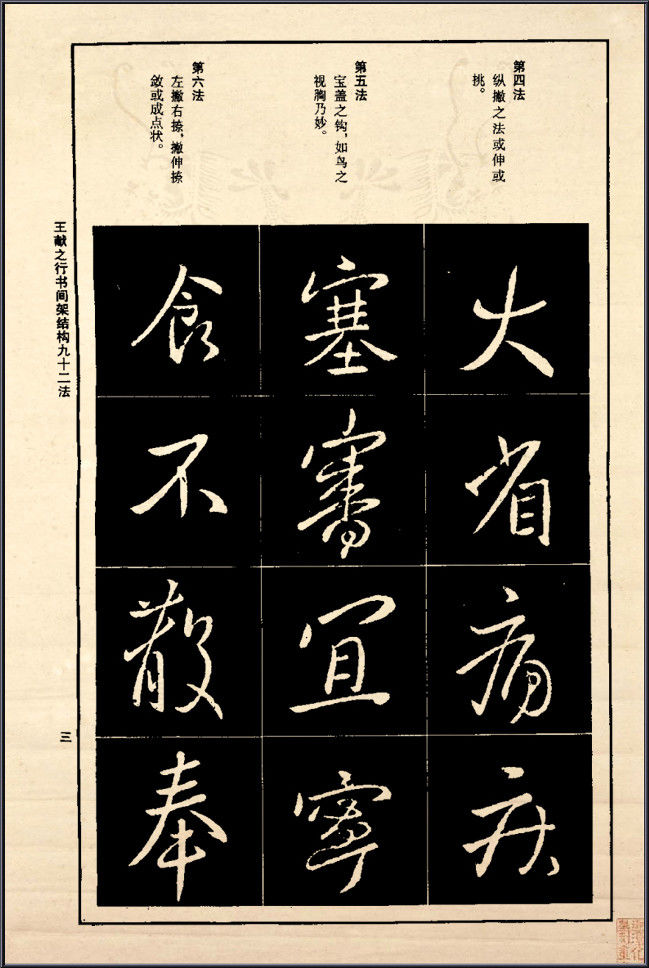 第四法
纵撇之法或伸或
挑。
火
省
疡
疾
第五法
宝盖之钩,如鸟之
视胸乃妙。
塞
審
宜
寧
第六法
左撇右捺,撇伸捺
敛或成点状。
食
不
散
奉
王献之行书间架结构九十二法
三